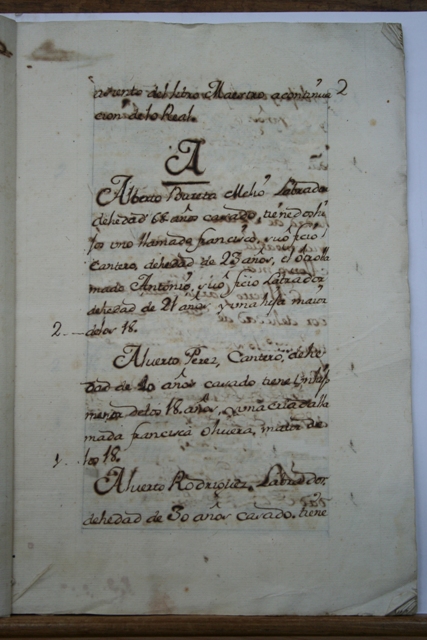 asiento del letro Maestro, a continua 2
cion de lo Real.
A
Alberto Boureta Meño Labrador
de hedad 68. años casado, tiene dos hi
jos uno llamado francisco, su oficio
Cantero, de hedad de 23 años, el otro lla
mado Antonio, su oficio Labrador
de hedad de 21 años, y una hija maior
2 de los 18.
Alverto Perez, Cantero, de he
dad de 40 años casado tiene un hijo
menor de los 18. años, y una criada lla
mada francisca Olivera, maior de
1 los 18.
Alverto Rodriguez, Labrador,
de hedad de 30 años casado. tiene